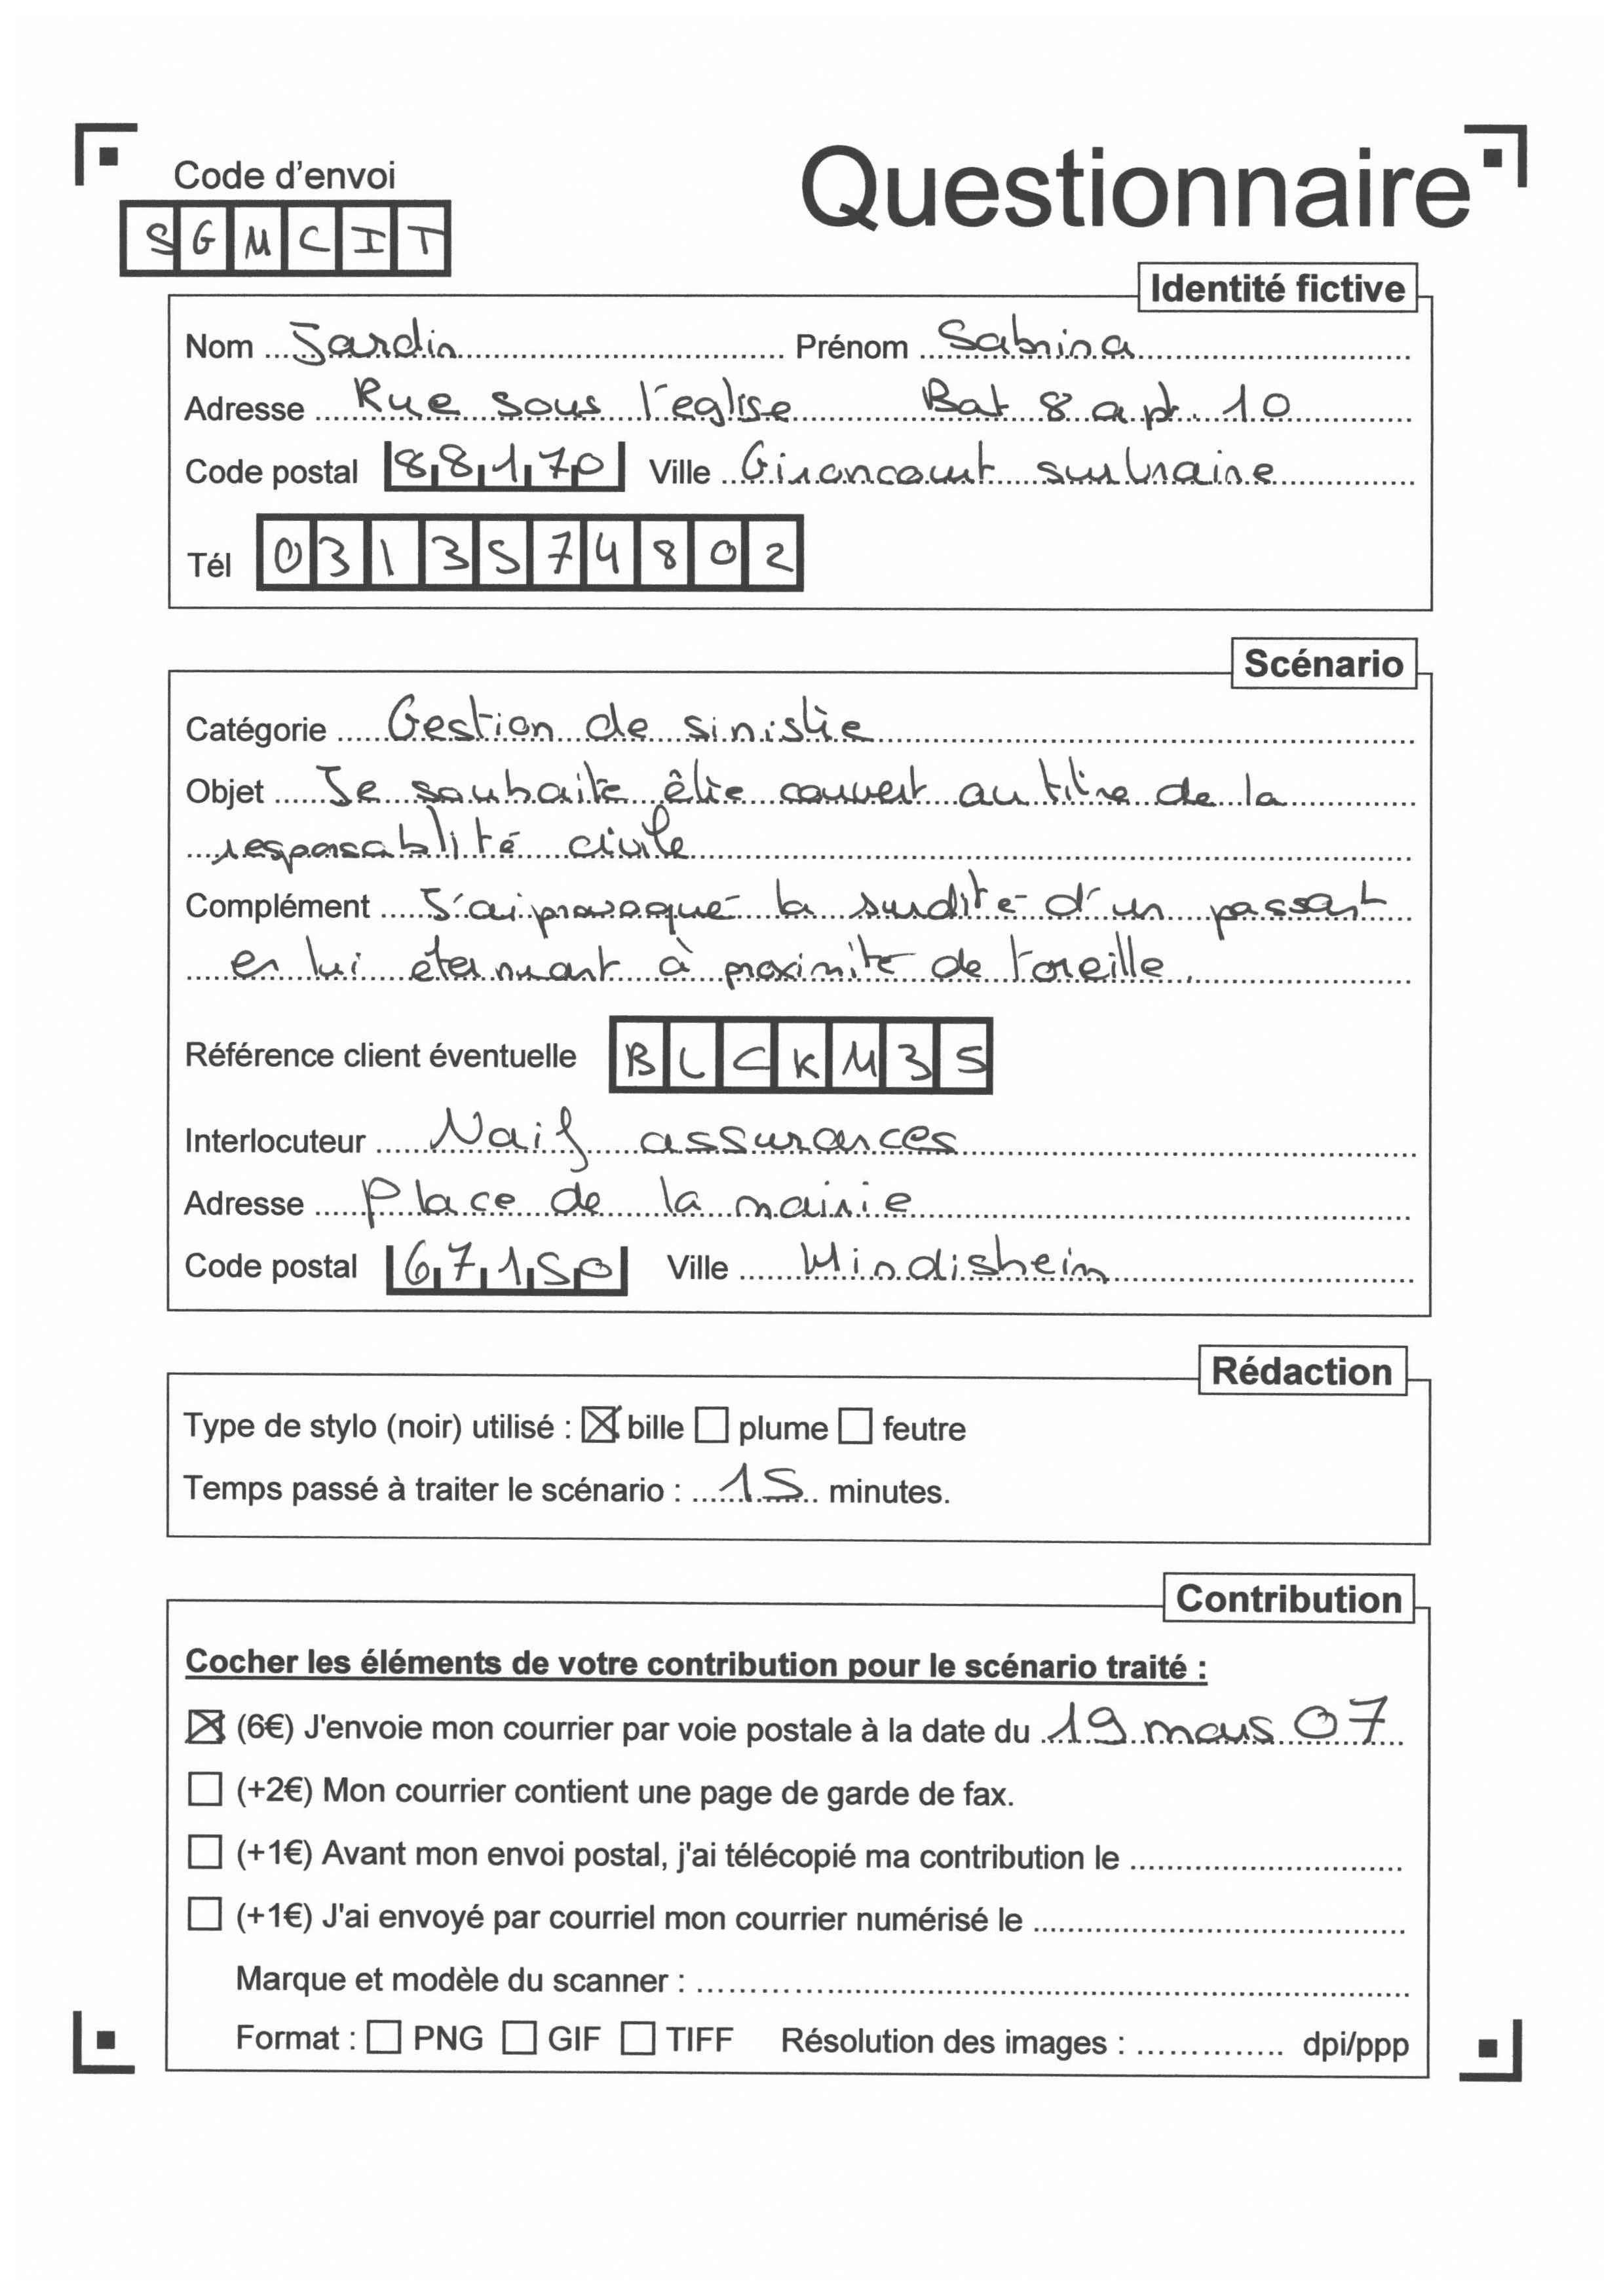 Code d'envoi
Questionnaire
SGMCIT
Identité fictive
Nom Jardin Prénom Sabrina
Adresse Rue sous l'eglise Bat 8 apt. 10
Code postal 88170 Ville Gironcourt sur Vraine
Tél 0313574802
Scénario
Catégorie Gestion de sinistre
Objet Je souhaite être couvert au titre de la
responsablité civile
Complément J'ai provoqué la surdité d'un passant
en lui éternuant à proximité de l'oreille.
Référence client éventuelle BLCKM35
Interlocuteur Naif assurances
Adresse Place de la mairie
Code postal 67150 Ville Hindisheim
Rédaction
Type de stylo (noir) utilisé : ☒ bille ☐ plume ☐ feutre
Temps passé à traiter le scénario : 15 minutes.
Contribution
Cocher les éléments de votre contribution pour le scénario traité :
☒ (6€) J'envoie mon courrier par voie postale à la date du 19 mars 07
☐ (+2€) Mon courrier contient une page de garde de fax.
☐ (+1€) Avant mon envoi postal, j'ai télécopié ma contribution le
☐ (+1€) J'ai envoyé par courriel mon courrier numérisé le
Marque et modèle du scanner :
Format : ☐ PNG ☐ GIF ☐ TIFF Résolution des images : dpi/ppp